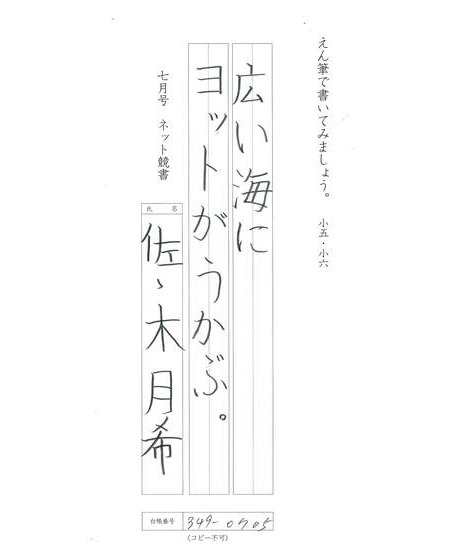 えん筆で書いてみましょう。 小五・小六
広い海に
ヨットがうかぶ。
七月号 ネット競書
氏名
佐々木月希
台帳番号 349-0705
(コピー不可)